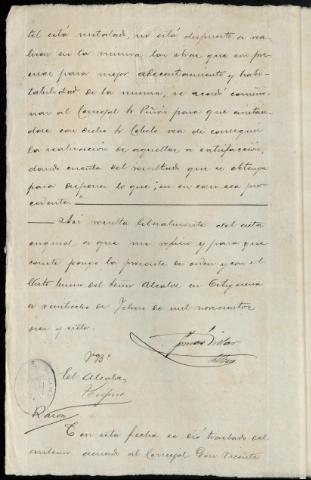 tel está instalado, no está dispuesto a rea-
lizar en la misma las obras que se pre-
cisar para mejor adecentamiento y habi-
tabilidad de la misma, se acordó comisio-
nar al Concejal Sr. Piñón para que avistan-
dose con dicho Sr. Cabelo vea de conseguir
la realización de aquellas a satisfacción,
dando cuenta del resultado que se obtenga
para disponer lo que, en su caso sea pro-
cedente."
Así resulta literalmente del acta
original a que me refiero y para que
conste pongo la presente de orden y con el
Visto bueno del Señor Alcalde en
a veintiocho de Febrero de mil novecientos
diez y siete.
Vº Bº
El Alcalde,
Razon
Con esta fecha se dió traslado del
anterior acuerdo al Concejal Don Vicente